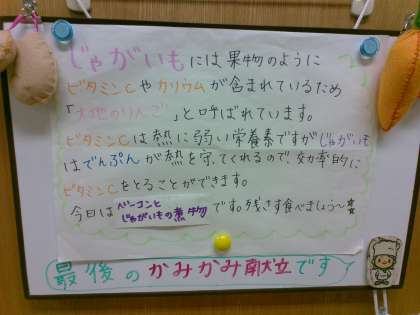 じゃがいもには果物のように
ビタミンCやカリウムが含まれているため
「大地のりんご」と呼ばれています。
ビタミンCは熱に弱い栄養素ですがじゃがいも
はでんぷんが熱を守ってくれるので効率的に
ビタミンCをとることができます。
今日はベーコンと
じゃがいもの煮物です。残さず食べましょう〜☆
最後のかみかみ献立です